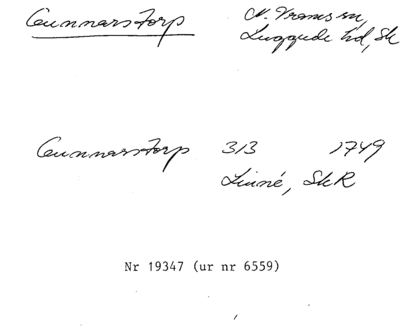 Gunnarstorp N. Vrams sn,
Luggude hd, Sk
Gunnarstorp 313 1749
Linné, SkR
Nr 19347 (ur nr 6559)